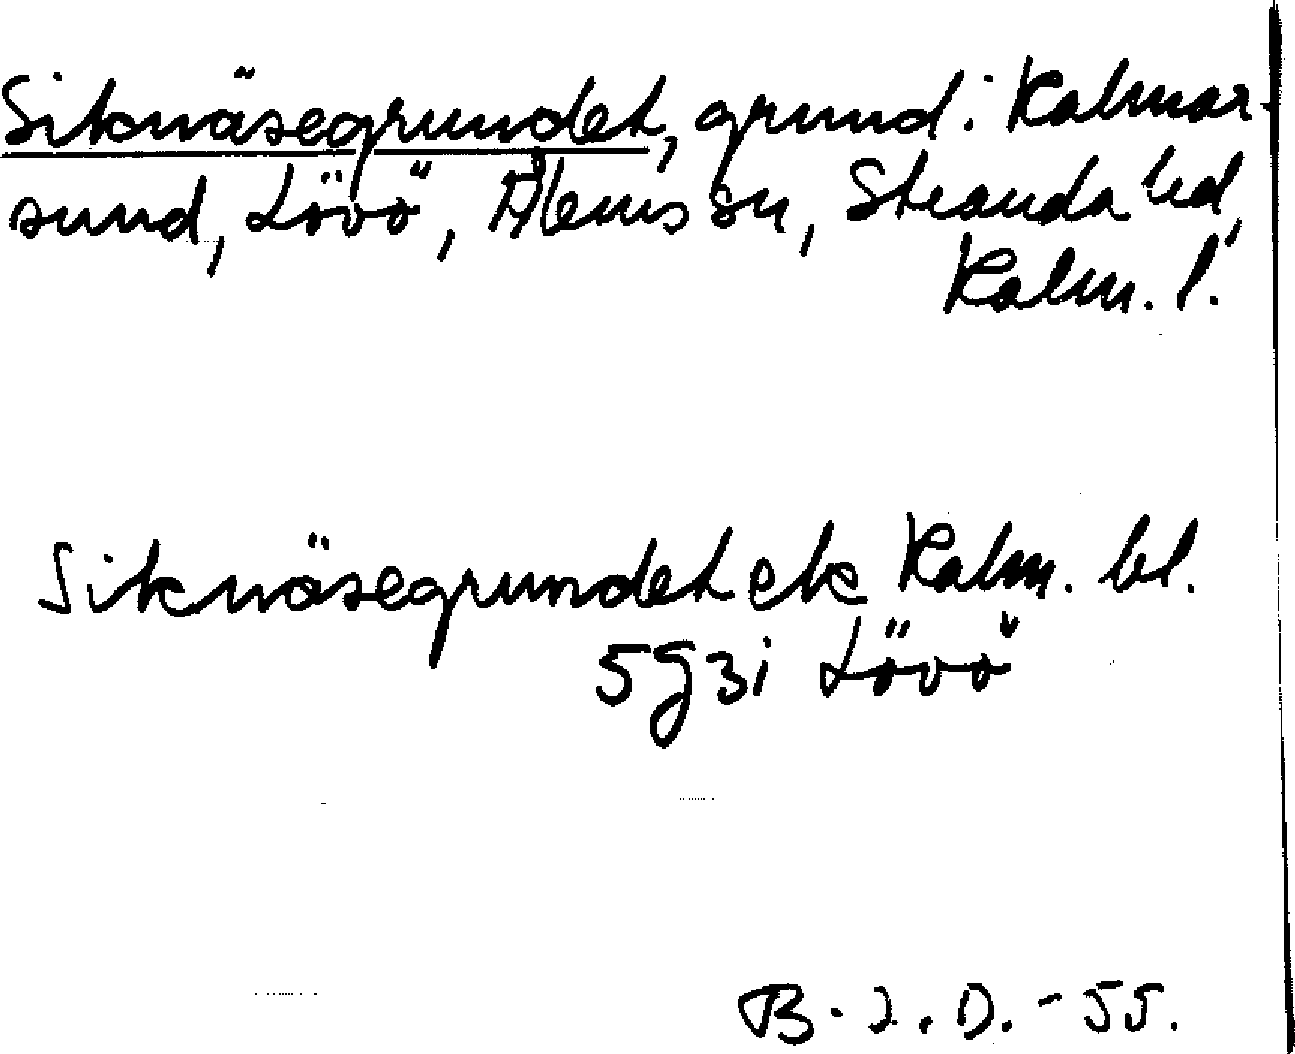 Siknäsegrundet, grund i Kalmar-
sund, Lövö, Ålems sn, Stranda hd,
Kalm. l.
Siknäsegrundet ek Kalm. bl.
5g3i Lövö
B. J. D. - 55.